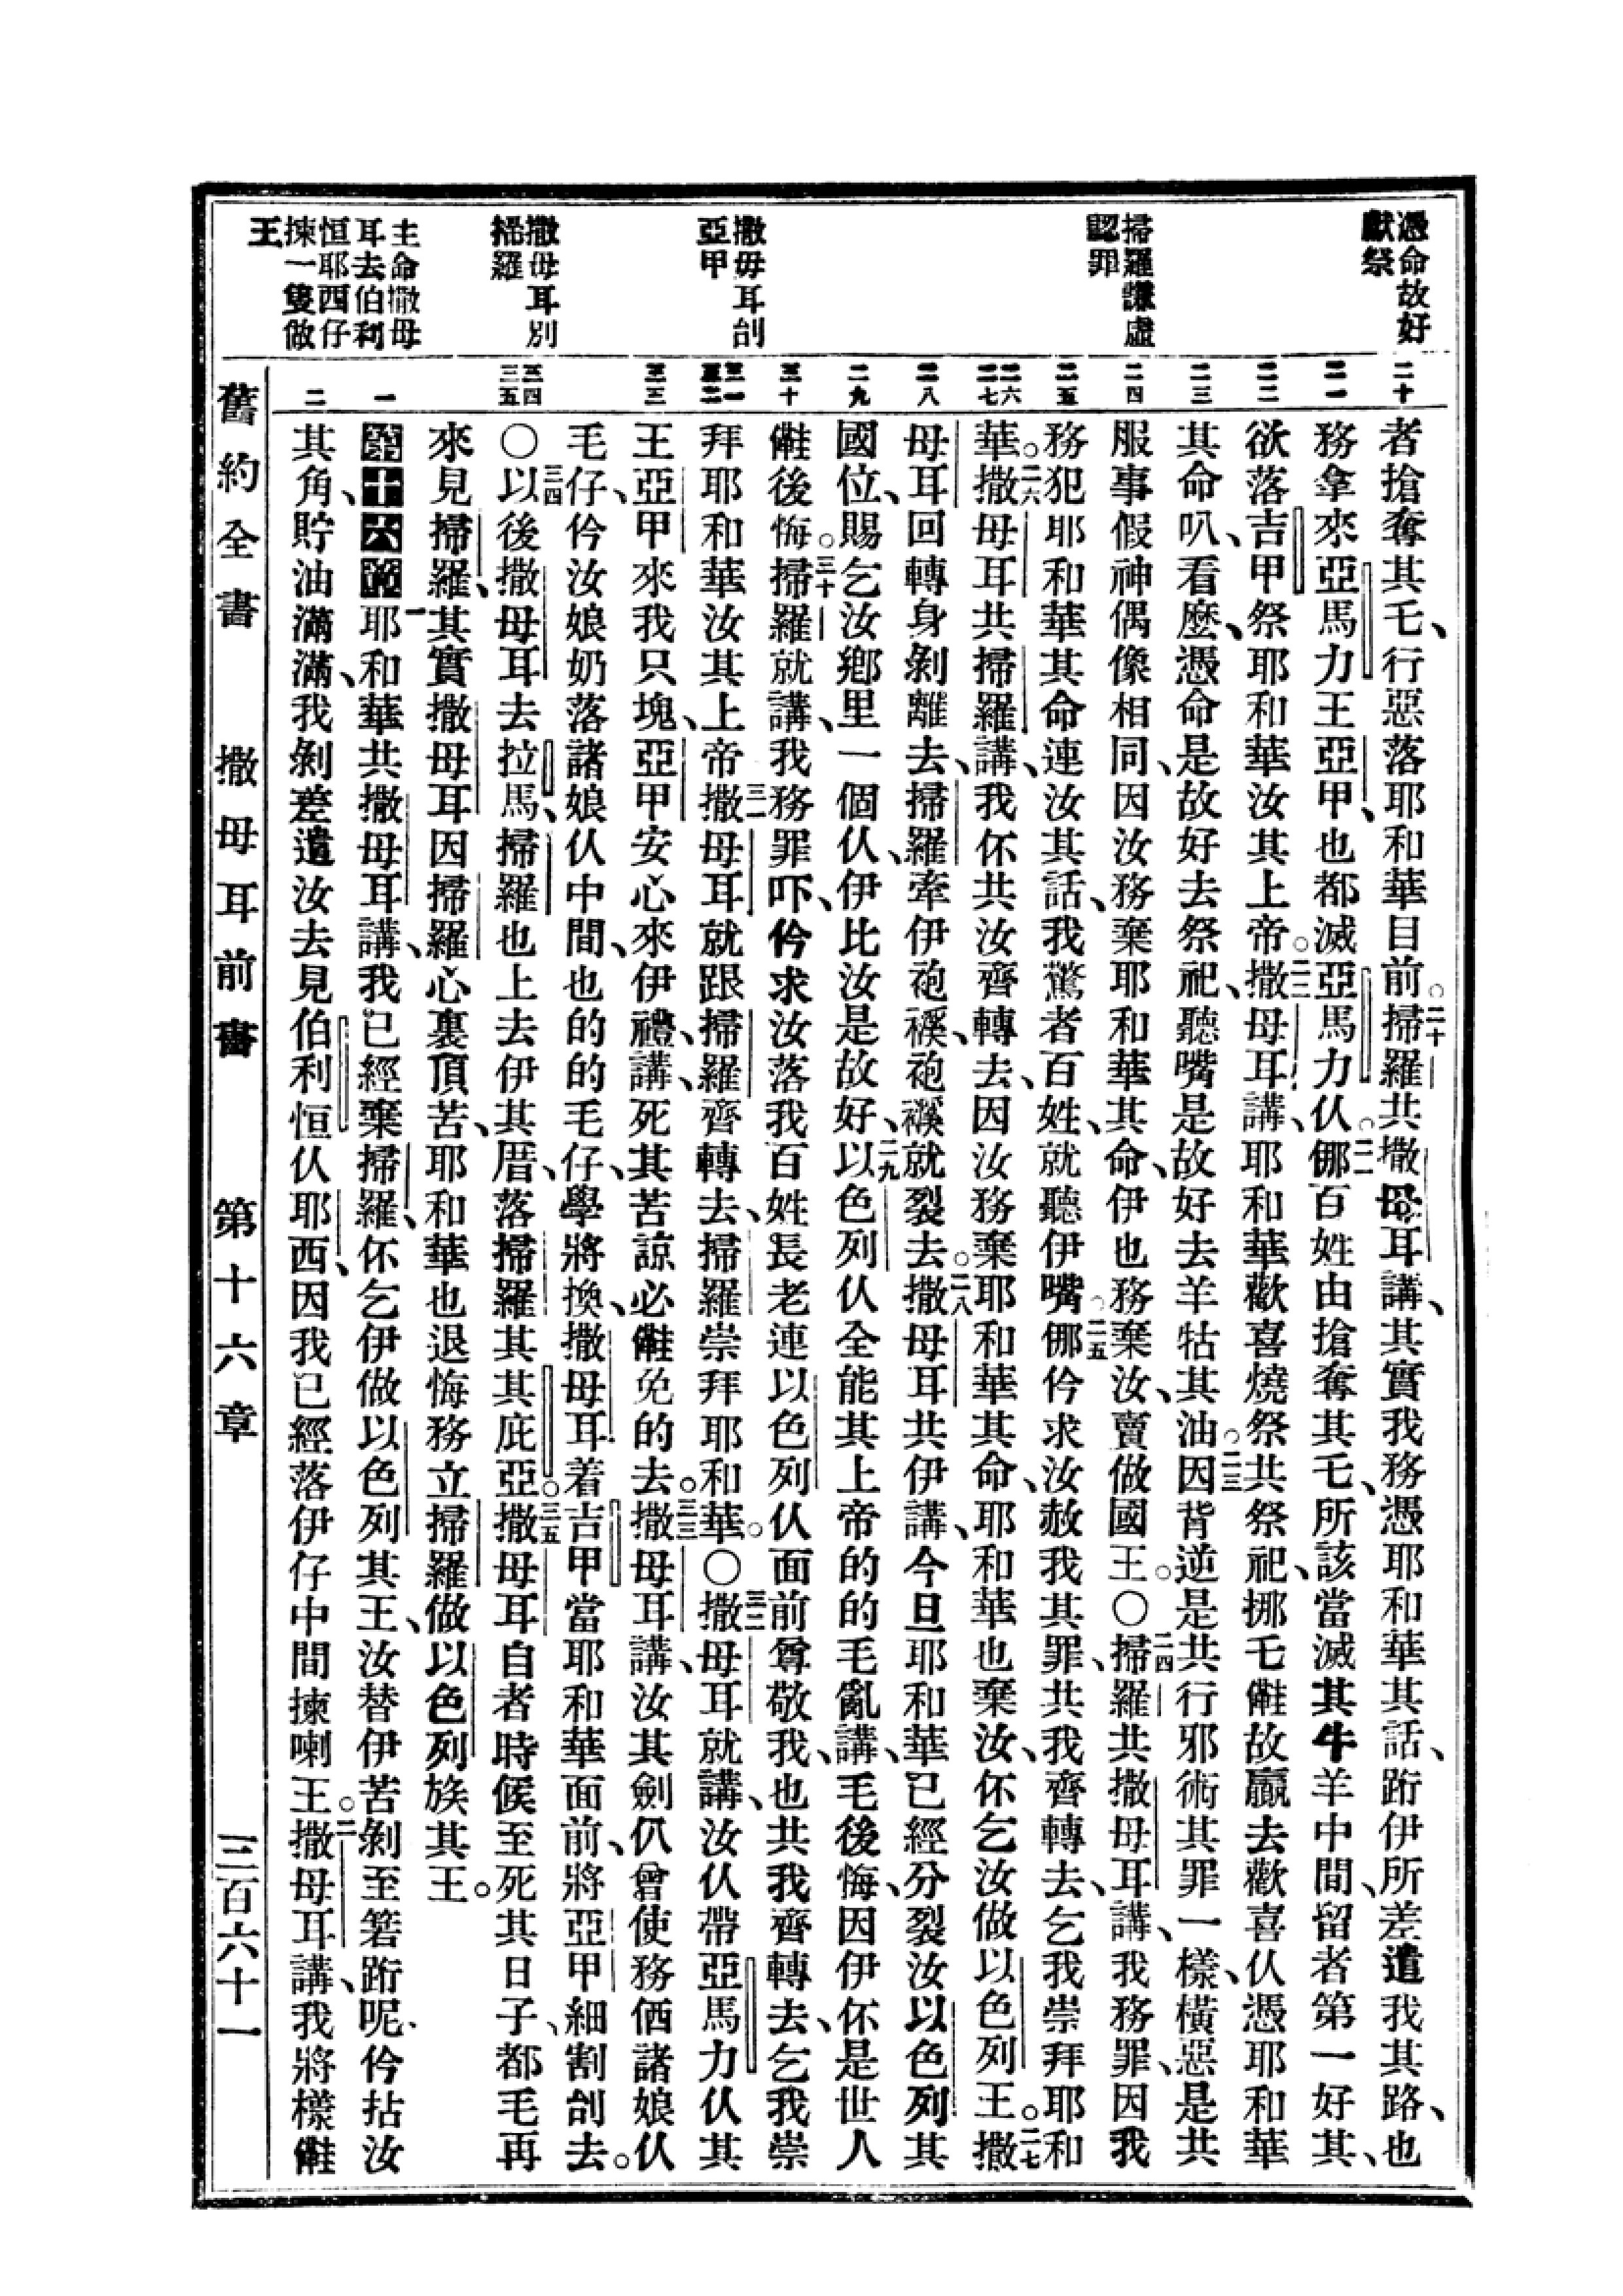 憑命故好
獻祭
掃羅謙虛
認罪
撒毋耳刣
亞甲
撒母耳別
掃羅
主命撒母
耳去伯利
恒耶西仔
揀一隻做
王
二十
二一
二二
二三
二四
二五
二六
二七
二八
二九
三十
三一
三二
三三
三四
三五
一
二
者搶奪其乇、行惡落耶和華目前。二十掃羅共撒母耳講、其實我務憑耶和華其話、跻伊所差遣我其路、也
務拿來亞馬力王亞甲、也都滅亞馬力仈。二一㑚百姓由搶奪其乇、所該當滅其牛羊中間、留者第一好其、
欲落吉甲祭耶和華汝其上帝。二二撒母耳講、耶和華歡喜燒祭共祭祀、挪毛㒕故贏去歡喜仈憑耶和華
其命叭、看麼、憑命是故好去祭祀、聽嘴是故好去羊牯其油。二三因背逆是共行邪術其罪一樣、橫惡是共
服事假神偶像相同、因汝務棄耶和華其命、伊也務棄汝、賣做國王。〇二四掃羅共撒母耳講、我務罪、因我
務犯耶和華其命連汝其話、我驚者百姓、就聽伊嘴。二五㑚仱求汝赦我其罪、共我齊轉去、乞我崇拜耶和
華。二六撒母耳共掃羅講、我伓共汝齊轉去、因汝務棄耶和華其命、耶和華也棄汝、伓乞汝做以色列王。二七撒
母耳回轉身剝離去、掃羅牽伊袍襚、袍襚就裂去。二八撒母耳共伊講、今旦耶和華已經分裂汝以色列其
國位、賜乞汝鄉里一個仈、伊比汝是故好、二九以色列仈全能其上帝的的毛亂講、毛後悔、因伊伓是世人
㒕後悔。三十掃羅就講、我務罪吓、仱求汝落我百姓長老連以色列仈面前尊敬我、也共我齊轉去、乞我崇
拜耶和華汝其上帝。三一撒母耳就跟掃羅齊轉去、掃羅崇拜耶和華。〇三二撒母耳就講、汝仈帶亞馬力仈其
王亞甲來我只塊、亞甲安心來伊禮、講、死其苦諒必㒕免的去。三三撒母耳講、汝其劍仈曾使務㐽諸娘仈
毛仔、仱汝娘奶落諸娘仈中間、也的的毛仔、學將換、撒母耳着吉甲當耶和華面前、將亞甲細割刣去。
〇三四以後撒母耳去拉馬、掃羅也上去伊其厝、落掃羅其其庇亞。三五撒母耳自者時候至死其日子、都毛再
來見掃羅、其實撒母耳因掃羅心裏頂苦、耶和華也退悔務立掃羅做以色列族其王。
第十六章 一耶和華共撒母耳講、我已經棄掃羅、伓乞伊做以色列其王、汝替伊苦剝至筶跻呢、仱拈汝
其角、貯油滿滿、我剝差遣汝去見伯利恒仈耶西、因我已經落伊仔中間揀喇王。二撒母耳講、我將樣㒕
舊約全書 撒母耳前書 第十六章 三百六十一